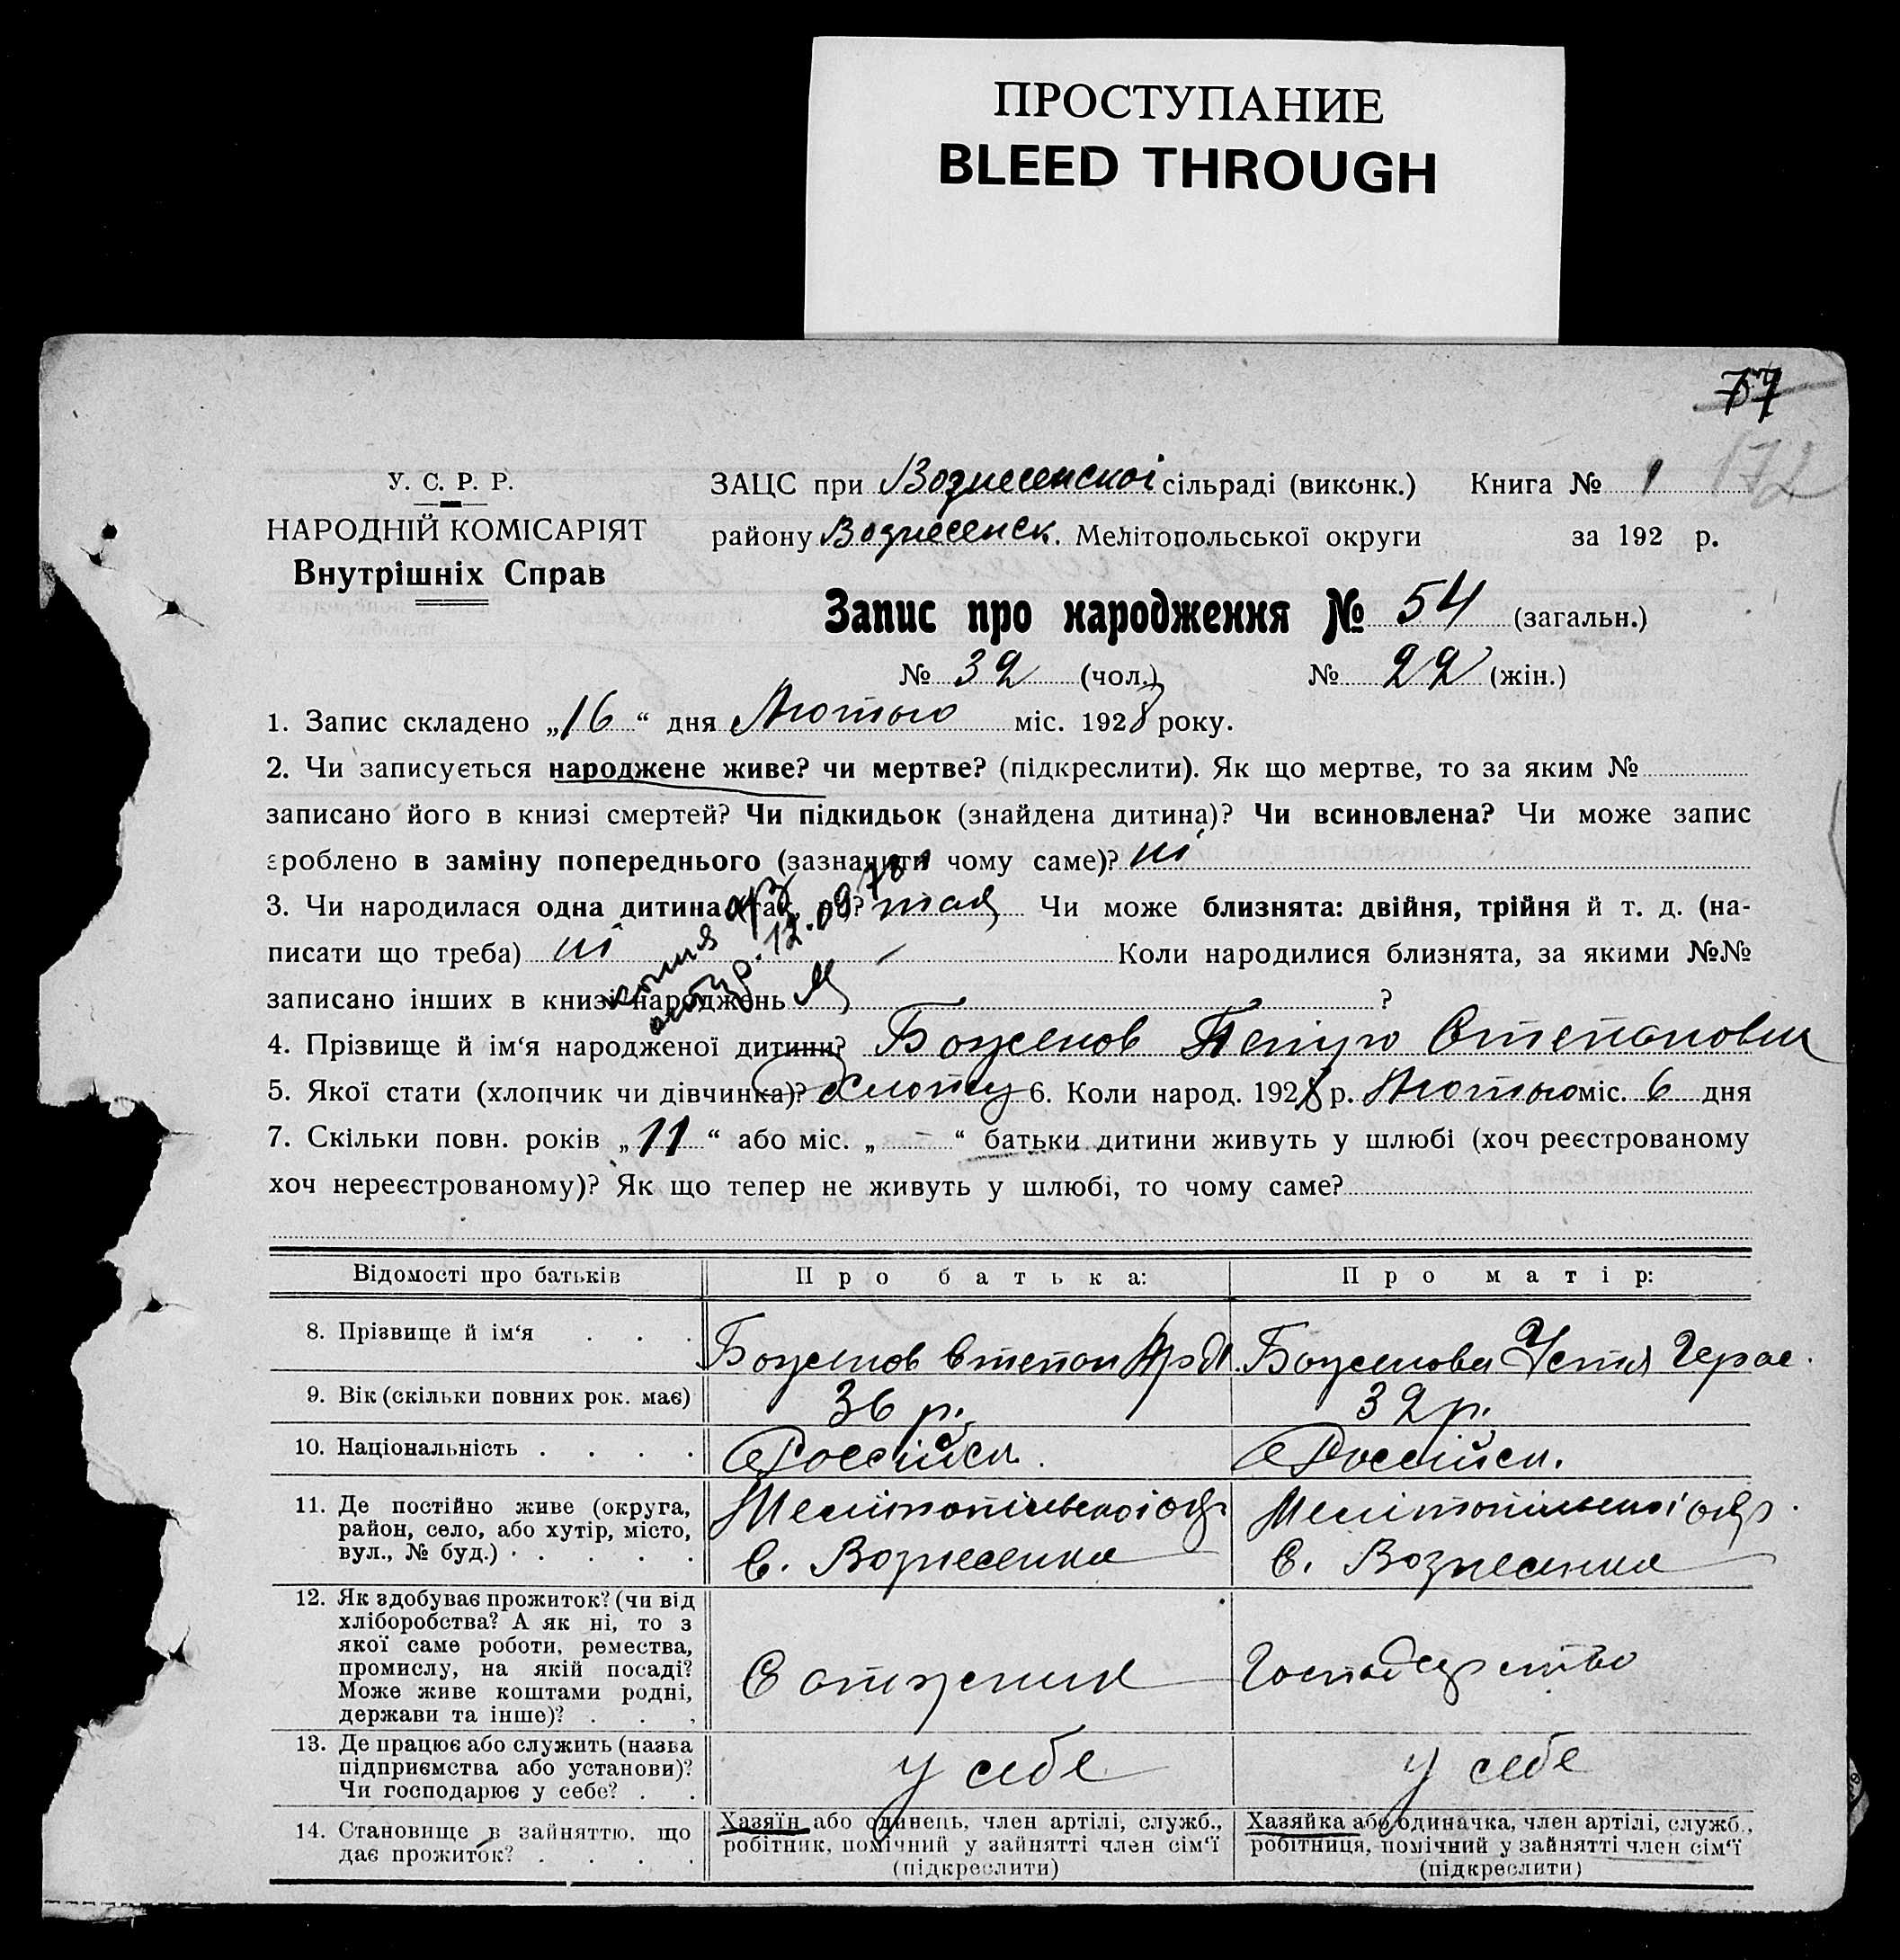 ПРОСТУПАНИЕ
BLEED THROUGH
77
172
У. С. Р. Р.
НАРОДНІЙ КОМІСАРІЯТ
Внутрішніх Справ
ЗАЦС при Вознесенскоі сільраді (виконк.) Книга № 1
району Вознесенск. Мелітопольської округи за 192 р.
Запис про народження № 54 (загальн.)
№ 32 (чол.) № 22 (жін.)
1. Запис складено „16“ дня Лютого міс. 1928 року.
2. Чи записується народжене живе? чи мертве? (підкреслити). Як що мертве, то за яким №
записано його в книзі смертей? Чи підкидьок (знайдена дитина)? Чи всиновлена? Чи може запис
зроблено в заміну попереднього (зазначити чому саме)? ні
3. Чи народилася одна дитина (так, ні)? так Чи може близнята: двійня, трійня й т. д. (на-
писати що треба) ні Коли народилися близнята, за якими №№
записано інших в книзі народжень ?
копия
12.09.78
4. Прізвище й ім‘я народженої дитини? Боженов Петро Степанович
5. Якої стати (хлопчик чи дівчинка)? Хлопец 6. Коли народ. 1928 р. Лютого міс. 6 дня
7. Скільки повн. років „11“ або міс. „-“ батьки дитини живуть у шлюбі (хоч реєстрованому
хоч нереєстрованому)? Як що тепер не живуть у шлюбі, то чому саме?
Відомості про батьків Про батька: Про матір:
8. Прізвище й ім‘я . . . Боженов Степан Боженова Устя Герас.
9. Вік (скільки повних рок. має) 36 р. 32 р.
10. Національність . . . . Россійск. Россійск.
11. Де постійно живе (округа, район, село, або хутір, місто, вул., № буд.) . . . . . Мелітопільскоі окр. Мелітопільскоі окр.
с. Вознесенка с. Вознесенка
12. Як здобуває прожиток? (чи від
хліборобства? А як ні, то з
якої саме роботи, ремества,
промислу, на якій посаді?
Може живе коштами родні,
держави та інше)? . . . Господарство
13. Де працює або служить (назва
підприємства або установи)?
Чи господарює у себе? . . у себе у себе
14. Становище в зайняттю, що
дає прожиток? . . . .
Хазяїн або одинець, член артілі, служб.,
робітник, помічний у зайнятті член сім‘ї
(підкреслити)
Хазяйка або одиначка, член артілі, служб.,
робітниця, помічний у зайнятті член сім‘ї
(підкреслити)